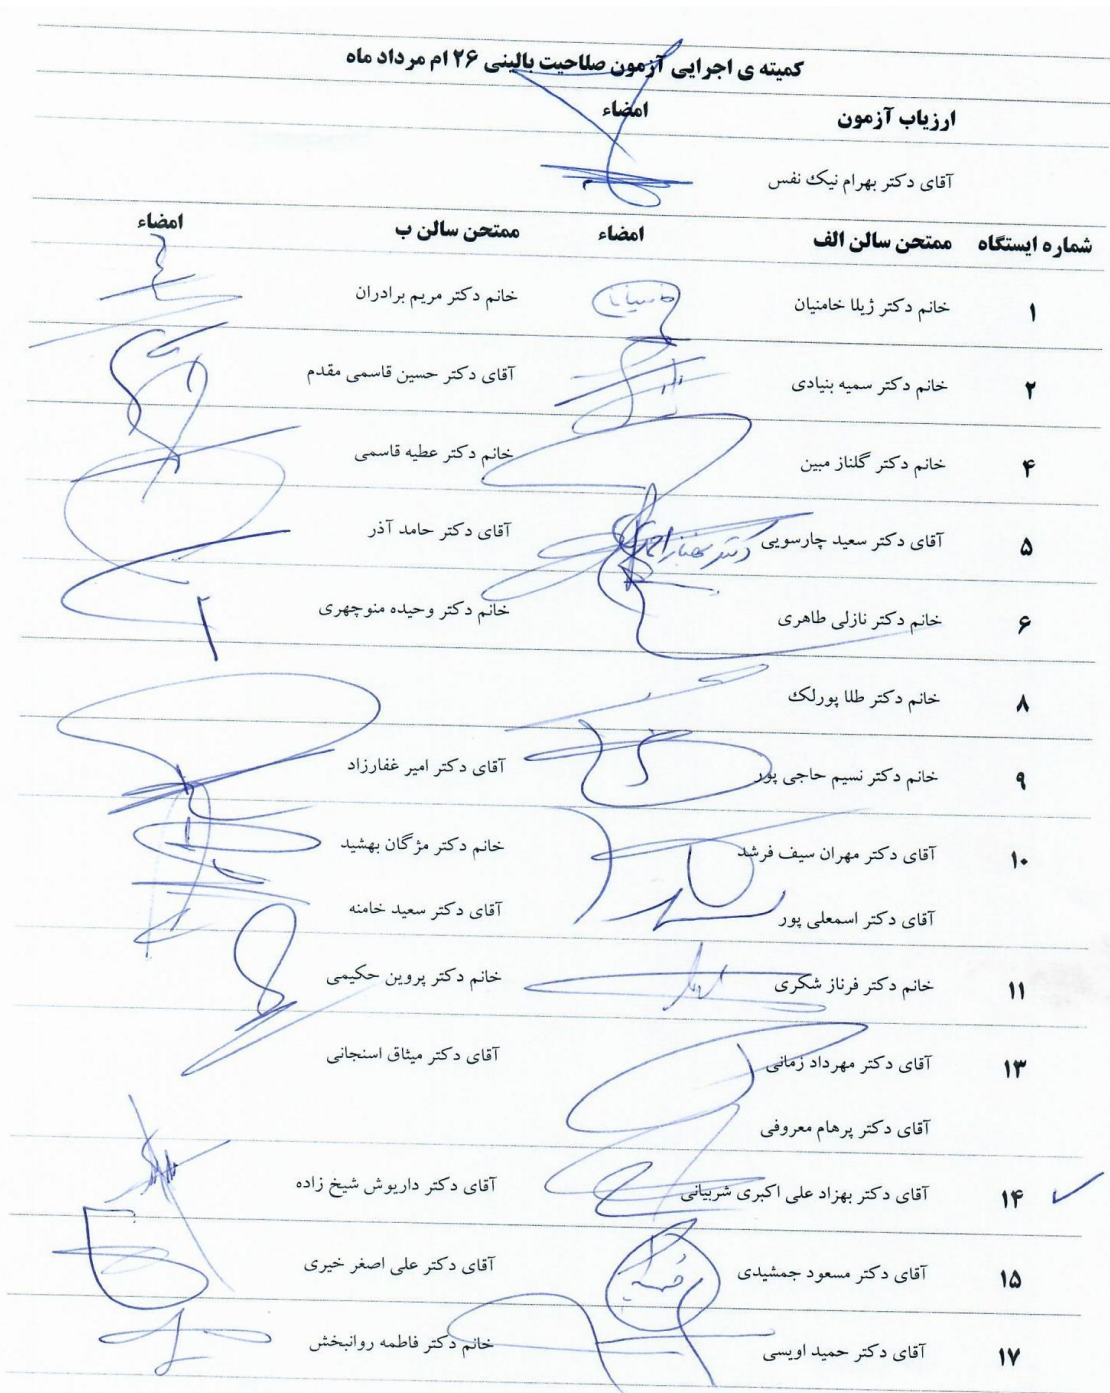 کمیته ی اجرایی آزمون صلاحیت بالینی ۲۶ ام مرداد ماه
ارزیاب آزمون امضاء
آقای دکتر بهرام نیک نفس
شماره ایستگاه ممتحن سالن الف امضاء ممتحن سالن ب امضاء
۱ خانم دکتر ژیلا خامنیان خانم دکتر مریم برادران
۲ خانم دکتر سمیه بنیادی آقای دکتر حسین قاسمی مقدم
۴ خانم دکتر گلناز مبین خانم دکتر عطیه قاسمی
۵ آقای دکتر سعید چارسویی دکتر آقای دکتر حامد آذر
۶ خانم دکتر نازلی طاهری خانم دکتر وحیده منوچهری
۸ خانم دکتر طلا پورلک
۹ خانم دکتر نسیم حاجی پور آقای دکتر امیر غفارزاد
۱۰ آقای دکتر مهران سیف فرشد خانم دکتر مژگان بهشید
آقای دکتر اسمعلی پور آقای دکتر سعید خامنه
۱۱ خانم دکتر فرناز شکری خانم دکتر پروین حکیمی
۱۳ آقای دکتر مهرداد زمانی آقای دکتر میثاق اسنجانی
آقای دکتر پرهام معروفی
۱۴ آقای دکتر بهزاد علی اکبری شربیانی آقای دکتر داریوش شیخ زاده
۱۵ آقای دکتر مسعود جمشیدی آقای دکتر علی اصغر خیری
۱۷ آقای دکتر حمید اویسی خانم دکتر فاطمه روانبخش